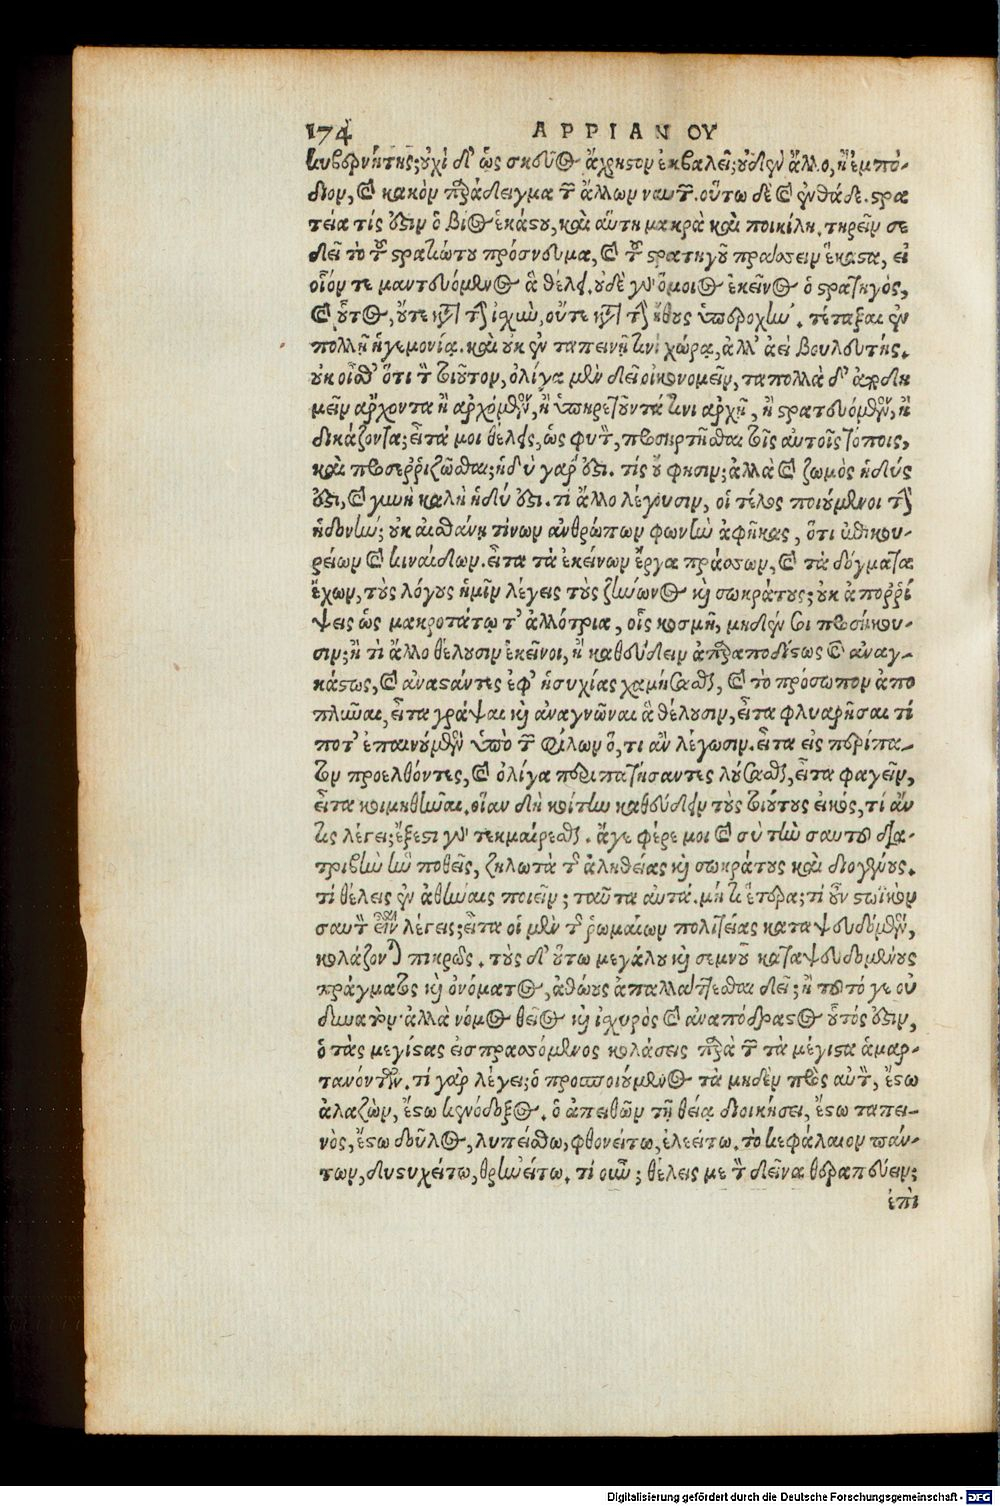 174 ΑΡΡΙΑΝΟΥ
κυβερνήτης; οὐχὶ δ' ὡς σκεῦος ἄχρηστον ἐκβαλεῖ; οὐδὲν ἄλλο, ἢ ἐμπό-
διον, καὶ κακὸν παράδειγμα τῶν ἄλλων ναυτῶν. οὕτω δὲ καὶ ἐνθάδε. στρα
τεία τίς ἐστιν ὁ βίος ἑκάστου, καὶ αὕτη μακρὰ καὶ ποικίλη. τηρεῖν σε
δεῖ τὸ τοῦ στρατιώτου πρόσνευμα, καὶ τοῦ στρατηγοῦ πράσσειν ἕκαστα, εἰ
οἷόν τε μαντευόμενος ἃ θέλει. οὐδὲ γὰρ ὅμοιος ἐκεῖνος ὁ στρατηγὸς,
καὶ οὗτος, οὔτε κατὰ τὴν ἰσχὺν, οὔτε κατὰ τὴν ἤθους ὑπεροχήν. τέταξαι ἐν
πολλῇ ἡγεμονίᾳ. καὶ οὐκ ἐν ταπεινῇ τινὶ χώρᾳ, ἀλλ' ἀεὶ βουλευτής.
οὐκ οἶσθ' ὅτι τὸν τοιοῦτον, ὀλίγα μὲν δεῖ οἰκονομεῖν, τὰ πολλὰ δ' ἀποδη
μεῖν ἄρχοντα ἢ ἀρχόμενον, ἢ ὑπηρετοῦντά τινι ἀρχῇ, ἢ στρατευόμενον, ἢ
δικάζοντα; εἶτά μοι θέλεις, ὡς φυτὸν, προσηρτῆσθαι τοῖς αὐτοῖς τόποις,
καὶ προσερριζῶσθαι; ἡδὺ γάρ ἐστι. τίς οὔ φησιν; ἀλλὰ καὶ ζωμὸς ἡδύς
ἐστι, καὶ γυνὴ καλὴ ἡδύ ἐστι. τί ἄλλο λέγουσιν, οἱ τέλος ποιούμενοι τὴν
ἡδονήν; οὐκ αἰσθάνῃ τίνων ἀνθρώπων φωνὴν ἀφῆκας, ὅτι ἐπικου-
ρείων καὶ κιναίδων. εἶτα τὰ ἐκείνων ἔργα πράσσων, καὶ τὰ δόγματα
ἔχων, τοὺς λόγους ἡμῖν λέγεις τοὺς ζήνωνος καὶ σωκράτους; οὐκ ἀπορρί
ψεις ὡς μακροτάτω τ' ἀλλότρια, οἷς κοσμῇ, μηδέν σοι προσήκου-
σιν; ἢ τί ἄλλο θέλουσιν ἐκεῖνοι, ἢ καθεύδειν ἀπαραποδίστως καὶ ἀναγ-
κάστως, καὶ ἀναστάντες ἐφ' ἡσυχίας χαμήσασθαι, καὶ τὸ πρόσωπον ἀπο
πλῦναι, εἶτα γράψαι καὶ ἀναγνῶναι ἃ θέλουσιν, εἶτα φλυαρῆσαι τί
ποτ' ἐπαινούμενον ὑπὸ τῶν φίλων ὅ, τι ἂν λέγωσιν. εἶτα εἰς περίπα-
τον προελθόντες, καὶ ὀλίγα περιπατήσαντες λούσασθαι, εἶτα φαγεῖν,
εἶτα κοιμηθῆναι. οἵαν δὴ κοίτην καθεύδειν τοὺς τοιούτους εἰκός, τί ἄν
τις λέγει; ἔξεστι γὰρ τεκμαίρεσθαι. ἄγε φέρε μοι καὶ σὺ τὴν σαυτοῦ δια-
τριβὴν ἣν ποθεῖς, ζηλωτὰ τῆς ἀληθείας καὶ σωκράτους καὶ διογένους.
τί θέλεις ἐν ἀθήναις ποιεῖν; ταῦτα αὐτά. μή τι ἕτερα; τί οὖν στωϊκὸν
σαυτὸν εἶναι λέγεις; εἶτα οἱ μὲν τῆς ῥωμαίων πολιτείας καταψευδόμενοι,
κολάζονται πικρῶς. τοὺς δ' οὕτω μεγάλου καὶ σεμνοῦ καταψευδομένους
πράγματος καὶ ὀνόματος, ἀθώους ἀπαλλάττεσθαι δεῖ; ἢ τοῦτό γε οὐ
δυνατόν· ἀλλὰ νόμος θεῖος καὶ ἰσχυρὸς καὶ ἀναπόδραστος οὗτός ἐστιν,
ὁ τὰς μεγίστας εἰσπρασσόμενος κολάσεις παρὰ τῶν τὰ μέγιστα ἁμαρ-
τανόντων. τί γὰρ λέγει; ὁ προσποιούμενος τὰ μηδὲν πρὸς αὐτὸν, ἔστω
ἀλαζὼν, ἔστω κενόδοξος. ὁ ἀπειθῶν τῇ θείᾳ διοικήσει, ἔστω ταπει-
νὸς, ἔστω δοῦλος, λυπείσθω, φθονείτω, ἐλεείτω. τὸ κεφάλαιον πάν-
των, δυστυχείτω, θρηνείτω. τί οὖν; θέλεις με τὸν δεῖνα θεραπεύειν;
ἐπὶ
Digitalisierung gefördert durch die Deutsche Forschungsgemeinschaft - DFG